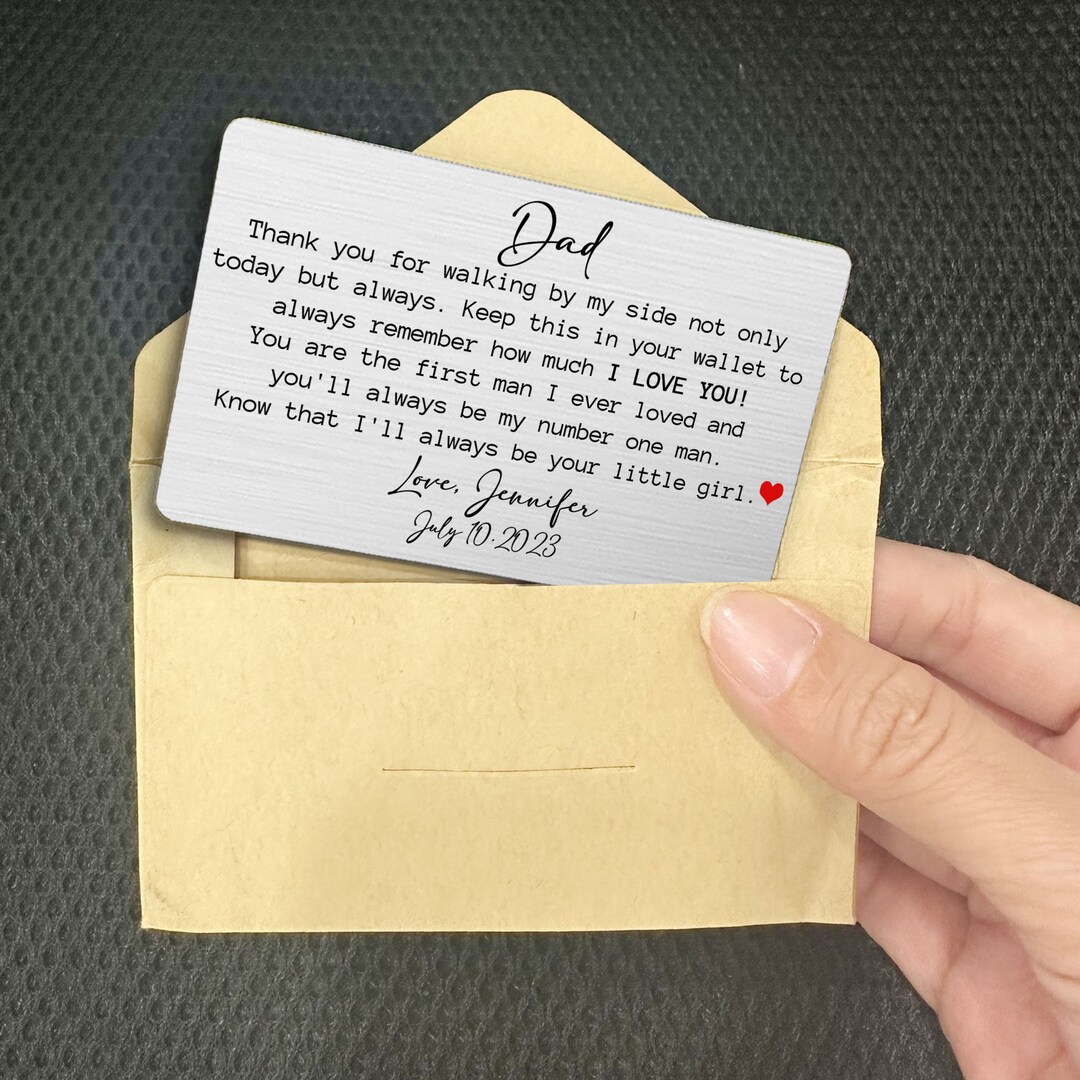 Dad
Thank you for walking by my side not only
today but always. Keep this in your wallet to
always remember how much I LOVE YOU!
You are the first man I ever loved and
you'll always be my number one man.
Know that I'll always be your little girl.❤
Love, Jennifer
July 10.2023